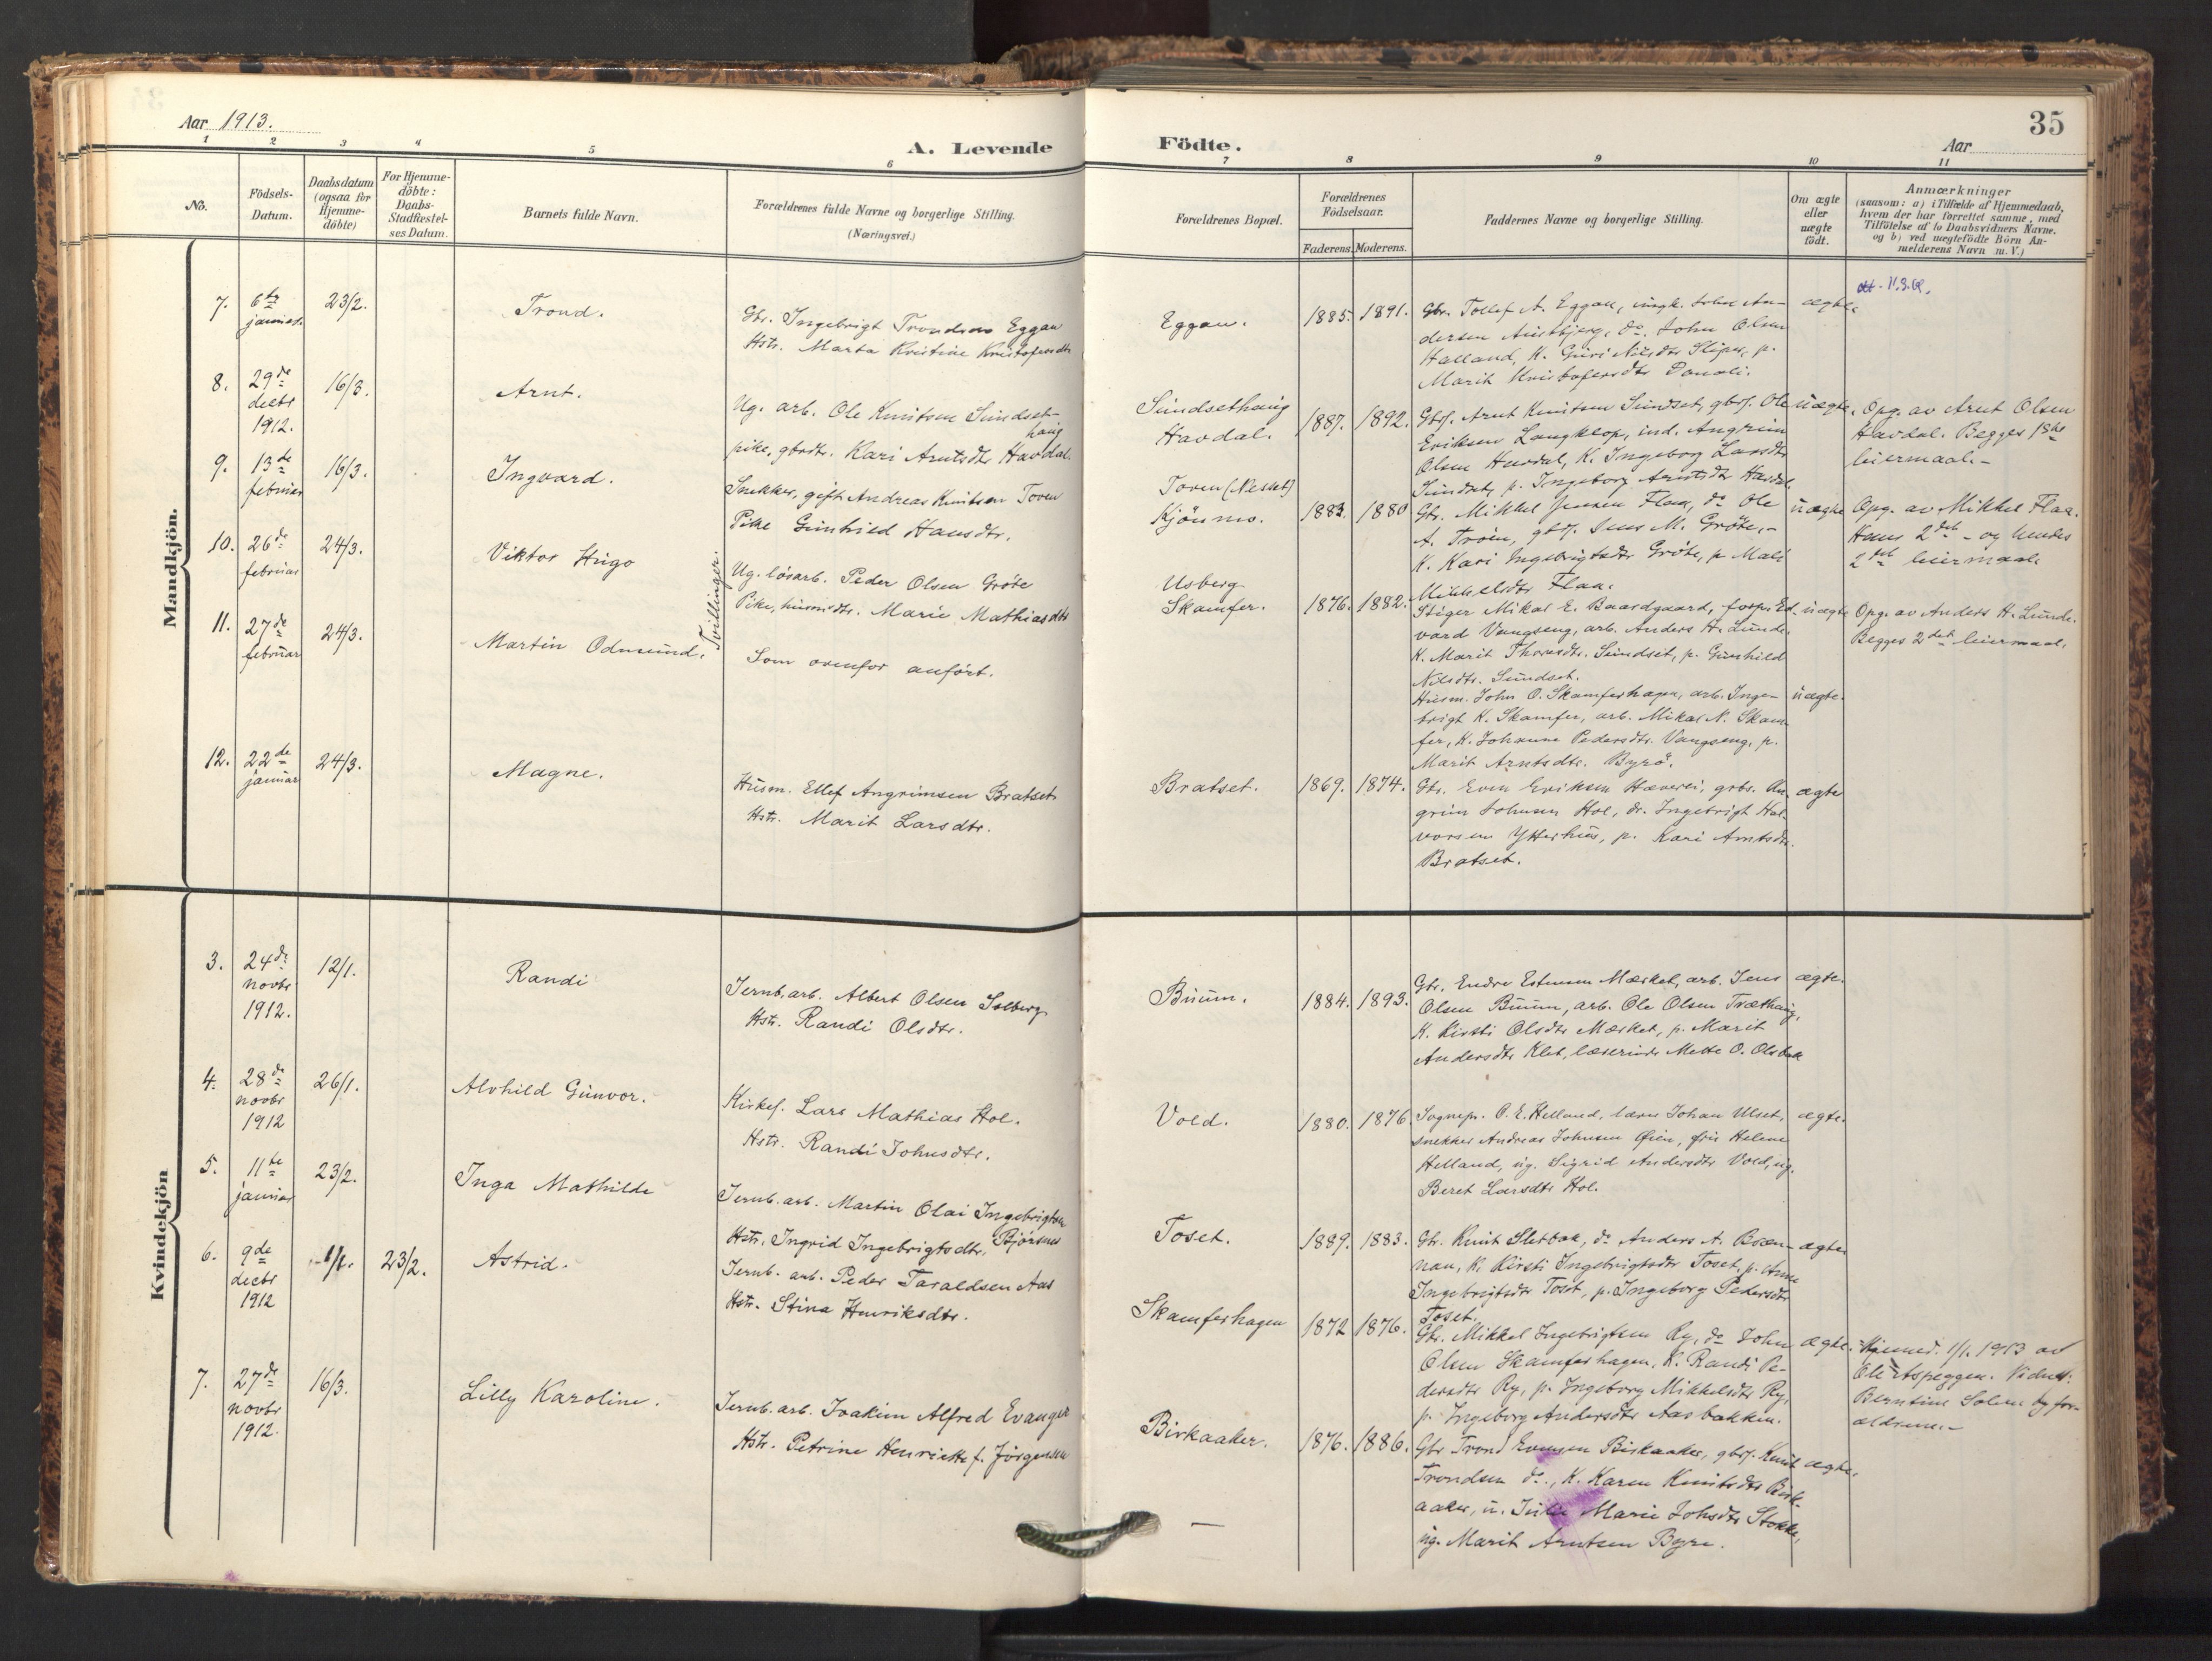 Aar 1913.
A. Levende
Födte.
Aar
35
1 2 3 4 5 6 7 8 9 10 11
No.
Födsels-
Datum.
Daabsdatum
(ogsaa for
Hjemme-
döbte)
For Hjemme-
döbte:
Daabs-
Stadfæstel-
ses Datum.
Barnets fulde Navn.
Forældrenes fulde Navne og borgerlige Stilling.
(Næringsvei.)
Forældrenes Bopæl.
Forældrenes
Födselsaar.
Faderens. Moderens.
Faddernes Navne og borgerlige Stilling.
Om ægte
eller
uægte
födt.
Anmærkninger
(saasom: a) i Tilfælde af Hjemmedaab,
hvem der har forrettet samme, med
Tilföielse af to Daabsvidners Navne.
og b) ved uægtefödte Börn An-
melderens Navn m. V.)
Mandkjön.
7. 6te
januar.
23/2.
Trond.
Gbr. Ingebrigt Trondsen Eggan
Hstr. Marta Kristine Kristofersdtr
Eggan.
1885. 1891.
Gbr. Tollef A. Eggan, ungk. John An-
dersen Austbjerg, do. John Olsen
Halland, K. Guri Nilsdtr Sliper, p.
Marit Kristofersdtr Donali.
ægte.
11.3.
8. 29de
decbr
1912.
16/3.
Arnt.
Ug. arb. Ole Knutsen Sundset-
haug
pike, gbrdtr. Kari Arntsdtr Havdal.
Sundsethaug
Havdal.
1887. 1892.
Gbrs. Arnt Knutsen Sundset, gbrs. Ole
Eriksen Langklop, ind. Angrim
Olsen Havdal, K. Ingeborg Larsdtr
Sundset, p. Ingeborg Arntsdtr Havdal.
uægte.
Opg. av Arnt Olsen
Havdal. Begges 1ste
leiermaal.-
9. 13de
februar
16/3.
Ingvard.
Snekker, gift Andreas Knutsen Toven
Pike Gunhild Hansdtr.
Toven (Nesset)
Kjönmo.
1883. 1880
Gbr. Mikkel Jensen Flaa, do Ole
A. Troen, gbrs. Jens M. Gröte,-
K. Kari Ingebrigtsdtr Gröte, p. Mali
Mikkelsdtr Flaa.
uægte
Opg. av Mikkel Flaa.
Hans 2det - og hendes
2det leiermaal.
10. 26de
februar
24/3.
Viktor Hugo
Tvillinger.
Ug. lösarb. Peder Olsen Gröte
Pike, husmdtr. Marie Mathiasdtr
Usberg
Skamfer.
1876. 1882.
Stiger Mikal E. Baardgaard, forp. Ed-
vard Vangseng, arb. Anders H. Lunde.
K. Marit Thoresdtr. Sundset, p. Gunhild
Nilsdtr. Sundset.
uægte
Opg. av Anders H. Lunde.
Begges 2det leiermaal.
11. 27de
februar
24/3.
Martin Odmund.
Som ovenfor anfört.
Husm. John O. Skamferhagen, arb. Inge-
brigt K. Skamfer, arb. Mikal N. Skam-
fer, K. Johanna Pedersdtr. Vangseng, p.
Marit Arntsdtr. Byrö.
uægte.
12. 22de
januar
24/3.
Magne.
Husm. Ellef Angrimsen Bratset
Hstr. Marit Larsdtr.
Bratset.
1869. 1874.
Gbr. Even Eriksen Hæverei, gbrs. An-
grim Johnsen Hol, dr. Ingebrigt Hal-
vorsen Ytterhus, p. Kari Arntsdtr.
Bratset.
ægte
Kvindekjön
3. 24de
novbr
1912.
12/1.
Randi
Jernb.arb. Albert Olsen Solberg
Hstr. Randi Olsdtr.
Buum.
1884. 1893.
Gbr. Endre Estensen Mæsket, arb. Jens
Olsen Buum, arb. Ole Olsen Træthaug,
K. Kirsti Olsdtr Mæsket, p. Marit
Andersdtr Klet, læserinde Mette O. Olsbak
ægte.
4. 28de
novbr
1912
26/1.
Alvhild Gunvor.
Kirkes. Lars Mathias Hol.
Hstr. Randi Johnsdtr.
Vold.
1880. 1876.
Sognepr. O. E. Helland, lærer Johan Ulset,
snekker Andreas Johnsen Öien, frø Helene
Helland, ug. Sigrid Andersdtr Vold, ug.
Beret Larsdtr Hol.
ægte.
5. 11te
januar
23/2.
Inga Mathilde
Jernb. arb. Martin Olai Ingebrigtsen
Hstr. Ingrid Ingebrigtsdtr. Björsnes
Toset.
1889. 1883.
Gbr. Knut Sletbak, do Anders A. Bræn-
nan, K. Kirsti Ingebrigtsdtr Toset, p. Anne
Ingebrigtsdtr Toset, p. Ingeborg Pedersdtr
Toset.
ægte
6. 9de
decbr
1912
1/1.
23/2.
Astrid.
Jernb. arb. Peder Taraldsen Aas
Hstr. Stina Henriksdtr.
Skamferhagen
1872 1876.
Gbr. Mikkel Ingebrigtsen Ry, do John
Olsen Skamferhagen, K. Randi Pe-
dersdtr Ry, p. Ingeborg Mikkelsdtr Ry,
p. Ingeborg Andersdtr Aasbakken.
ægte.
Hjemmed. 1/1. 1913 av
Oli Aspeggen. Vidner:
Berntine Solem og for-
ældrene.-
7. 27de
novbr
1912.
16/3.
Lilly Karoline.
Jernb. arb. Joakim Alfred Evanger
Hstr. Petrine Henriette f. Jörgensen
Birkaaker.
1876. 1886.
Gbr Trond Evensen Birkaaker, gbrs. Knut
Trondsen do., K. Karen Knutsdtr Birk-
aaker, u. Julie Marie Johsdtr Stokke,
ug. Marit Arntsen Byre.
ægte.